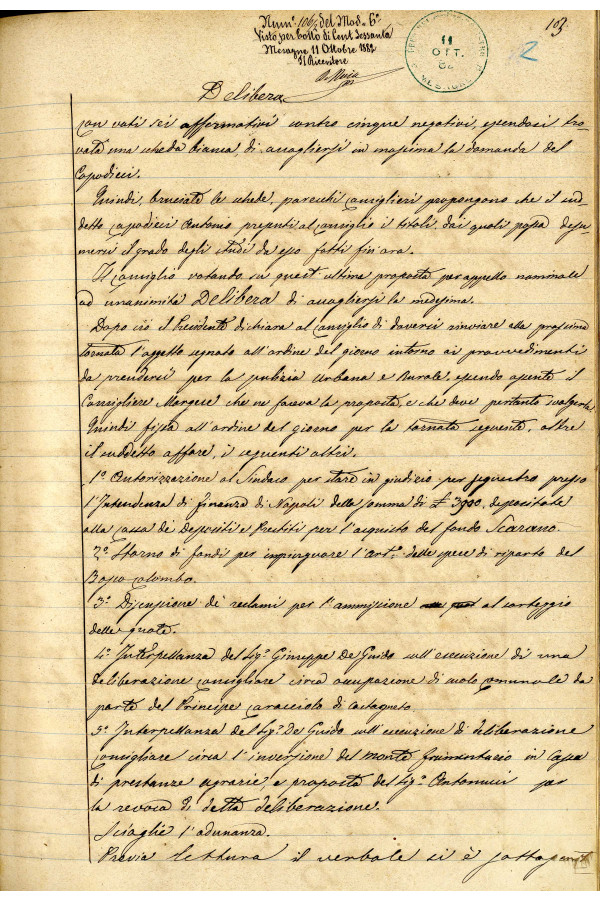 Num.º 106 del Mod.º 6º
Visto per bollo di Cent. Sessanta
Mesagne 11 Ottobre 1882
Il Ricevitore
103
2
11
OTT.
82
Delibera
con voti sei affermativi contro cinque negativi, essendosi tro-
vata una scheda bianca, di accogliersi in massima la domanda del
Capodieci.
Quindi, bruciate le schede, parecchi consiglieri propongono che il sud-
detto Capodieci Antonio presenti al Consiglio i titoli, dai quali possa desu-
mersi il grado degli studi da esso fatti fin'ora.
Il Consiglio votando su quest'ultima proposta per appello nominale
ad unanimità Delibera di accogliersi la medesima.
Dopo ciò il Presidente dichiara al Consiglio di doversi rinviare alla prossima
tornata l'oggetto segnato all'ordine del giorno intorno ai provvedimenti
da prendersi per la pulizia Urbana e Rurale, essendo assente il
Consigliere Morgese che ne faceva la proposta, e che deve pertanto svolgerla.
Quindi fissa all'ordine del giorno per la tornata seguente, oltre
il suddetto affare, i seguenti altri.
1º Autorizzazione al Sindaco per stare in giudizio per sequestro presso
l'Intendenza di finanza di Napoli della somma di £ 3900, depositate
alla cassa dei Depositi e Prestiti per l'acquisto del fondo Scarano.
2º Storno di fondi per impinguare l'Art.º delle spese di riparto del
Bosco Colombo.
3º Discussione de' reclami per l'ammissione al sorteggio
delle quote.
4º Interpellanza del Sig.r Giuseppe De Guido sull'esecuzione di una
deliberazione consigliare circa occupazione di suolo comunale da
parte del Principe Caracciolo di Castagneto.
5º Interpellanza del Sig.r De Guido sull'esecuzione di deliberazione
consigliare circa l'inversione del monte frumentario in Cassa
di prestanze agrarie, e proposta del Sig.r Antonucci per
la revoca di detta deliberazione.
Scioglie l'adunanza.
Previa lettura il verbale si è sottoscritto